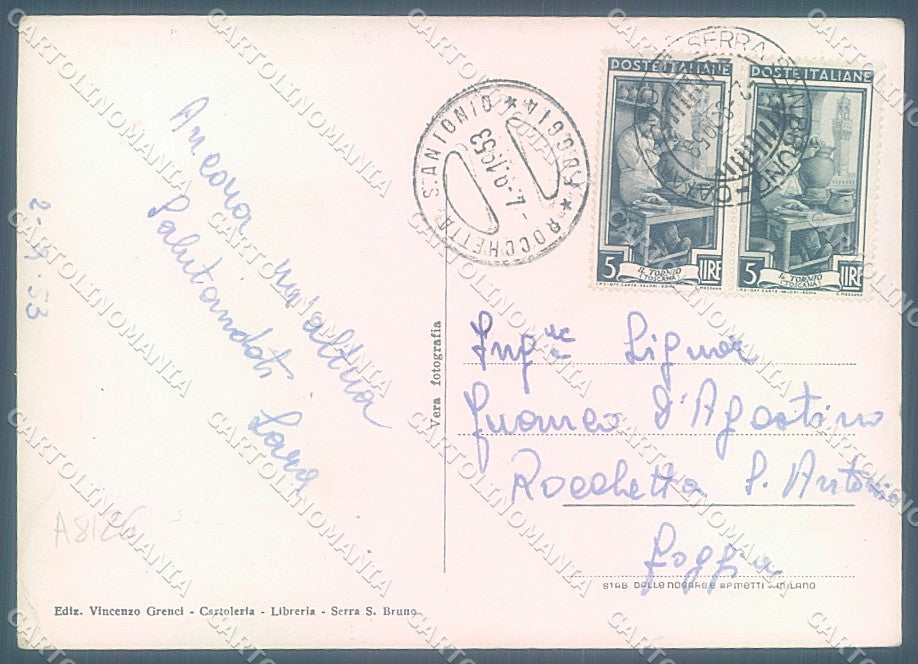 Ancora un'altra
Salutandoti
Sara
2-9-53
Vera fotografia
A8126
Ediz. Vincenzo Grenci - Cartoleria - Libreria - Serra S. Bruno
ROCCHETTA S. ANTONIO * FOGGIA *
-4.-9.1953
SERRA S. BRUNO
POSTE ITALIANE
5 LIRE
IL TORNIO
TOSCANA
POSTE ITALIANE
5 LIRE
IL TORNIO
TOSCANA
Signor
d'Agostino
Rocchetta S. Antonio
Foggia
STAB. DALLE NOGARE E ARMETTI - MILANO
CARTOLINOMANIA